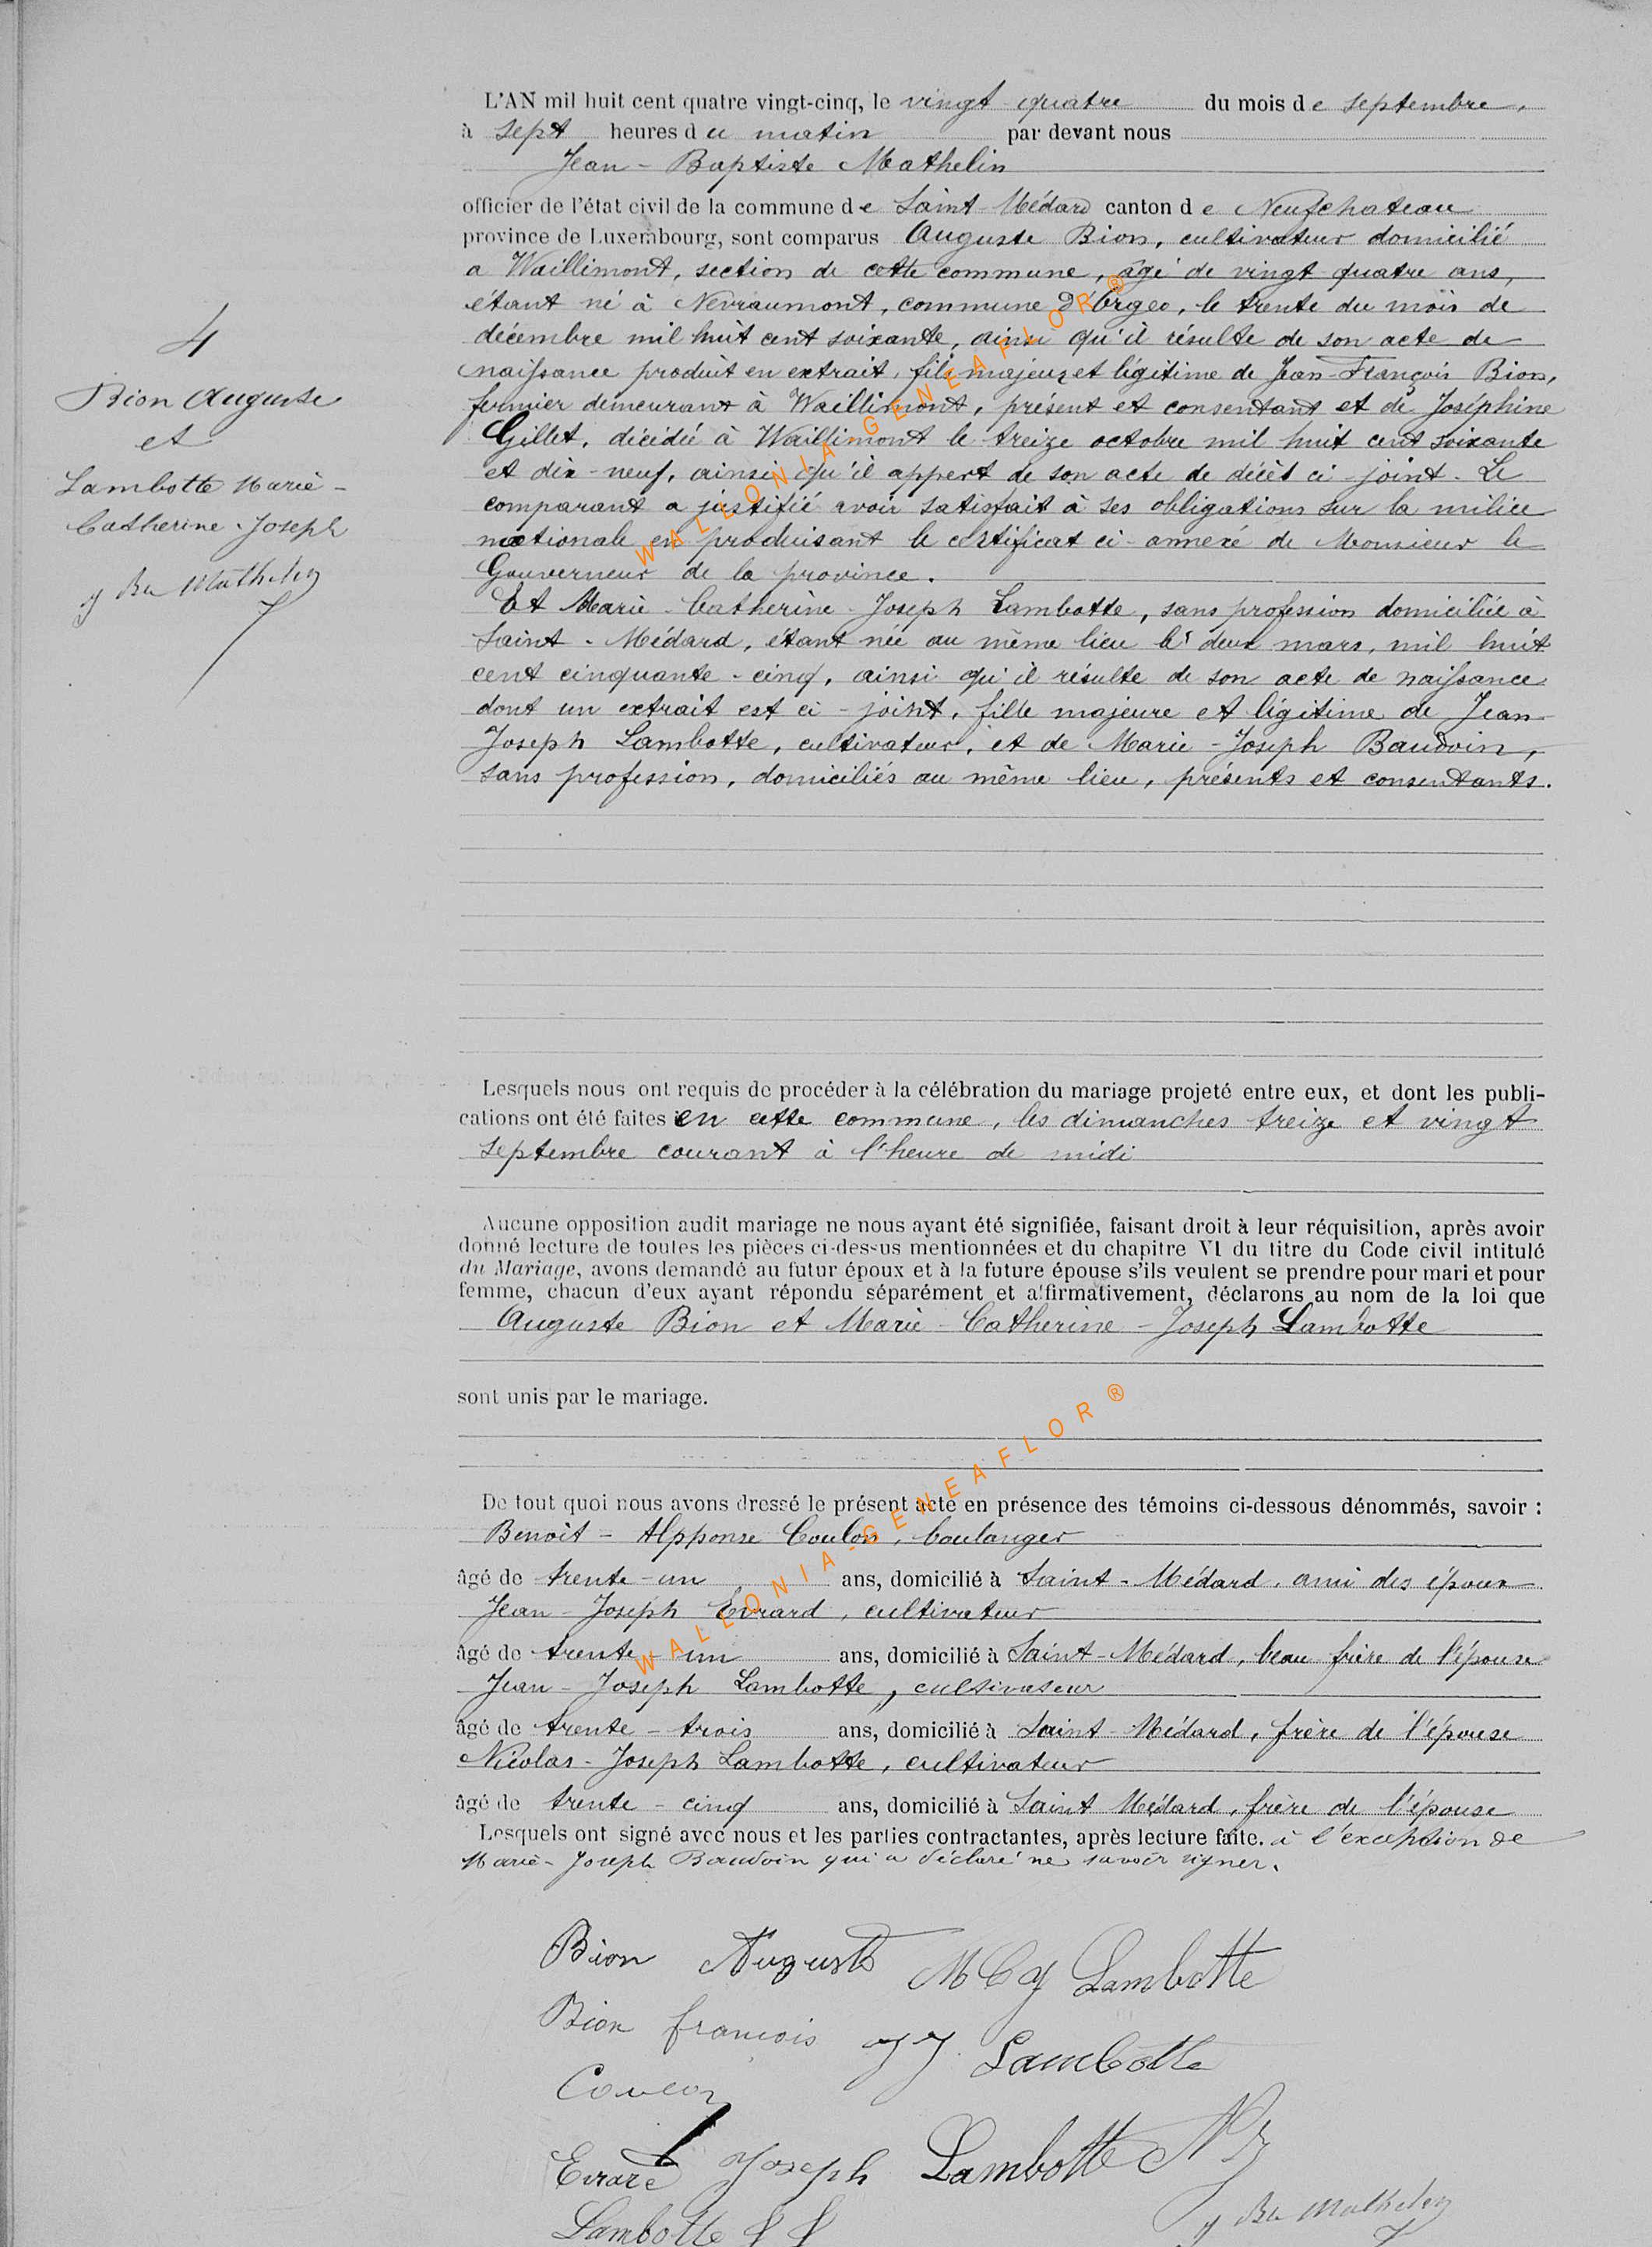 4
Bion Auguste
et
Lambotte Marie-
Catherine-Joseph
J Bte Mathelin
L'AN mil huit cent quatre vingt-cinq, le vingt quatre du mois de septembre,
à sept heures du matin par devant nous
Jean-Baptiste Mathelin
officier de l'état civil de la commune de Saint-Médard canton de Neufchateau
province de Luxembourg, sont comparus Auguste Bion, cultivateur domicilié
a Waillimont, section de cette commune, âgé de vingt quatre ans,
étant né à Nevraumont, commune d'Orgeo, le trente du mois de
décembre mil huit cent soixante, ainsi qu'il résulte de son acte de
naissance produit en extrait, fils majeur et légitime de Jean-François Bion,
fermier demeurant à Waillimont, présent et consentant et de Joséphine
Gillet, décédée à Waillimont le treize octobre mil huit cent soixante
et dix-neuf, ainsi qu'il appert de son acte de décès ci-joint. Le
comparant a justifié avoir satisfait à ses obligations sur la milice
nationale en produisant le certificat ci-annexé de Monsieur le
Gouverneur de la province.
Et Marie-Catherine-Joseph Lambotte, sans profession domiciliée à
Saint-Médard, étant née au même lieu le deux mars, mil huit
cent cinquante-cinq, ainsi qu'il résulte de son acte de naissance
dont un extrait est ci-joint, fille majeure et légitime de Jean
Joseph Lambotte, cultivateur, et de Marie-Joseph Baudoin,
sans profession, domiciliés au même lieu, présents et consentants.
Lesquels nous ont requis de procéder à la célébration du mariage projeté entre eux, et dont les publi-
cations ont été faites en cette commune, les dimanches treize et vingt
septembre courant à l'heure de midi
Aucune opposition audit mariage ne nous ayant été signifiée, faisant droit à leur réquisition, après avoir
donné lecture de toutes les pièces ci-dessus mentionnées et du chapitre VI du titre du Code civil intitulé
du Mariage, avons demandé au futur époux et à la future épouse s'ils veulent se prendre pour mari et pour
femme, chacun d'eux ayant répondu séparément et affirmativement, déclarons au nom de la loi que
Auguste Bion et Marie-Catherine-Joseph Lambotte
sont unis par le mariage.
De tout quoi nous avons dressé le présent acte en présence des témoins ci-dessous dénommés, savoir :
Benoît-Alpponse Coulon, boulanger
âgé de trente-un ans, domicilié à Saint-Médard, ami des époux
Jean-Joseph Evrard, cultivateur
âgé de trente-un ans, domicilié à Saint-Médard, beau frère de l'épouse
Jean-Joseph Lambotte, cultivateur
âgé de trente-trois ans, domicilié à Saint-Médard, frère de l'épouse
Nicolas-Joseph Lambotte, cultivateur
âgé de trente-cinq ans, domicilié à Saint Médard, frère de l'épouse
Lesquels ont signé avec nous et les parties contractantes, après lecture faite. à l'exception de
Marie-Joseph Baudoin qui a déclaré ne savoir signer.
Bion Auguste M C J Lambotte
Bion francois J J Lambotte
Coulon
Evrard Joseph Lambotte N J
Lambotte J J J Bte Mathelin
WALLONIA-GENEAFLOR®
WALLONIA-GENEAFLOR®